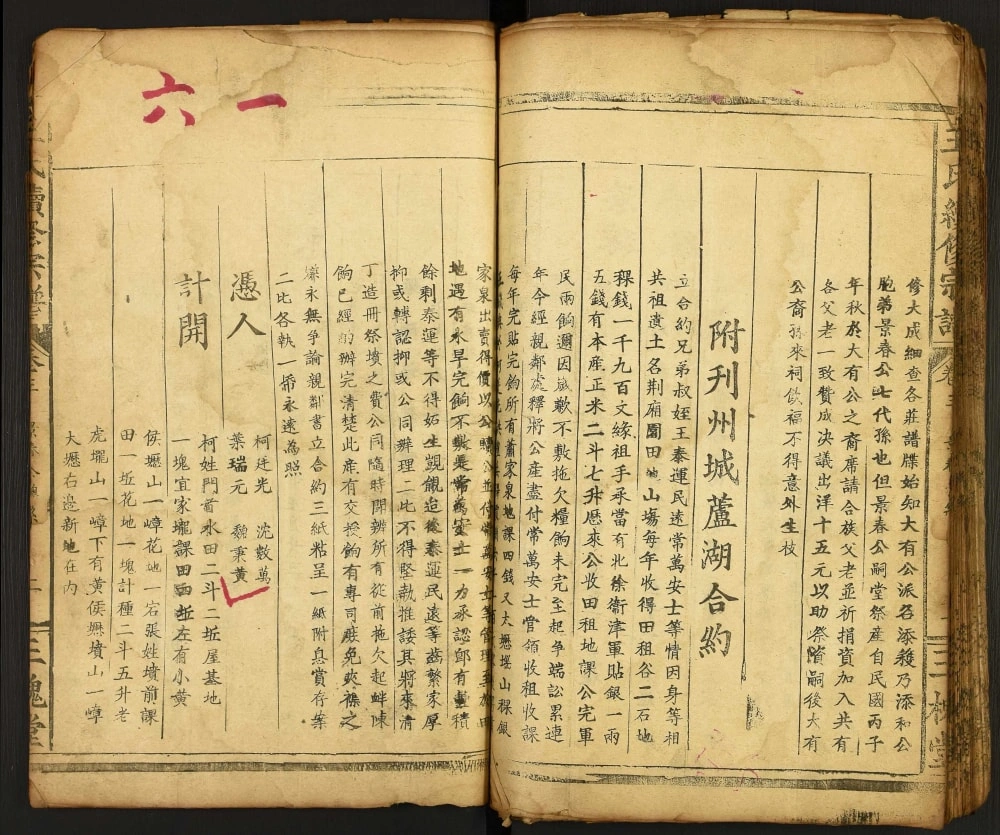 修大成細查各莊譜牒始知大有公派名添毅乃添和公
胞弟景春公七代孫也但景春公嗣堂祭産自民國丙子
年秋於大有公之裔席請合族父老並祈捐資加入共有
各父老一致賛成决議出洋十五元以助祭濱嗣後大有
公裔孫來祠飲福不得意外生枝
附刊州城蘆湖合約
立合約兄弟叔姪王泰運民遠常萬安士等情因身等相
共祖遺土名荆廂園田地山塲每年收得田租谷二石地
稞錢一千九百文緣祖手承當有北徐衛津軍貼銀一兩
五錢有本産正米二斗七升歷來公收田租地課公完軍
民兩餉邇因歲歉不敷拖欠糧餉未完至起爭端訟累連
年今經親鄰處釋將公産盡付常萬安士嘗領收租收課
每年完貼完餉所有蕭家泉地課四錢又大壢堪山稞銀
家泉出賣得價以公歸公並付常萬安士等管理至於田
地遇有水旱完餉不敷是常萬安士一力承認即有畫積
餘剩泰運等不得妬生覬覦造後泰運民遠等齒繁家厚
抑或轉認抑或公同辦理二比不得堅執推諉其將來清
丁造冊祭墳之費公同臨時開辨所有從前拖欠起衅陳
餉已經的辦完清楚此産有交授餉有專司庶免夾襟之
嫌永無爭論親鄰書立合約三紙粘呈一紙附息賞存案
二比各執一帋永遠為照
憑人
柯廷光 沈數萬
葉瑞元 魏秉黃
計開
柯姓門首水田二斗二坵屋基地
一塊宜家壠課田四坵左有小黄
侯壢山一嶂花地一宕張姓墳前課
田一坵花地一塊計種二斗五升老
虎壢山一嶂下有黄侯嫲墳山一嶂
大壢右邉新地在内
一六
三槐堂